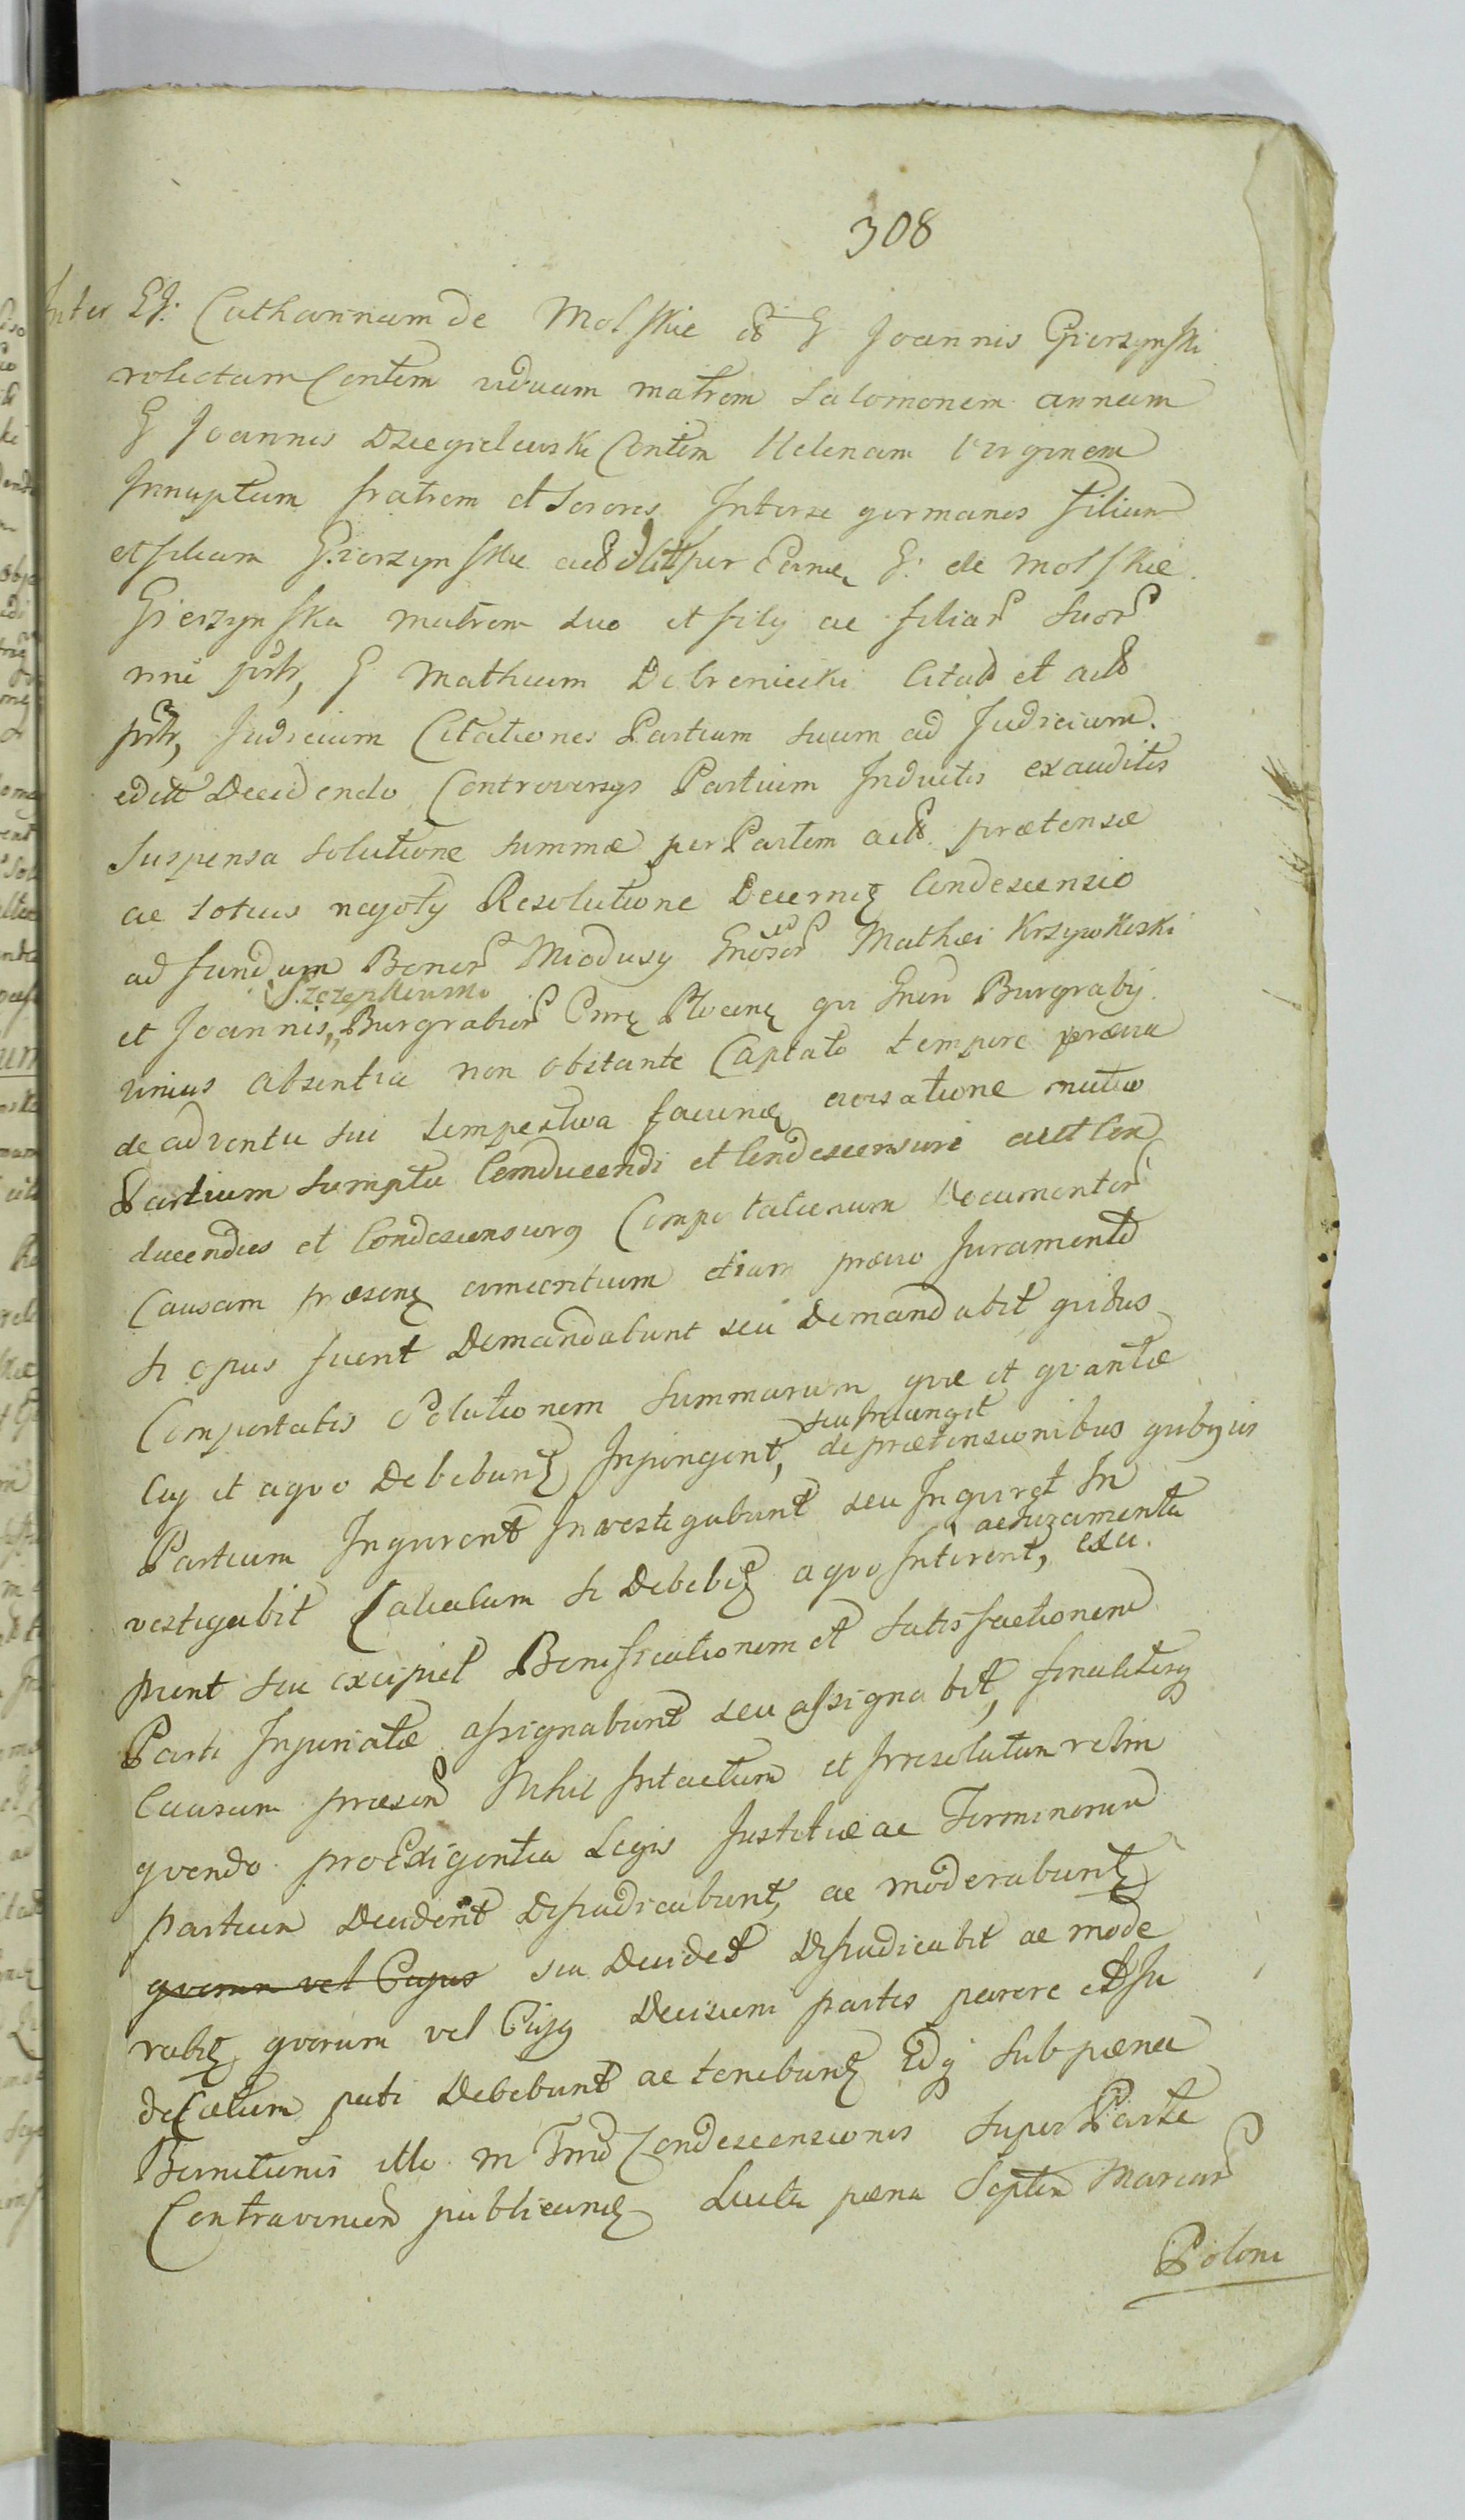 308
Inter G. Catharinam de Molskie G Joannis Gierzynski
relictam Consortem viduam matrem Salomonem annam
G Joannis Dziegielewski Contem Helenam Virginem
Innuptam fratrem et Sorores Interse germanos filium
et filiam Gierzynskie per G. de Molskie
Gierzynska matrem suo et filij ac filiar suor
nnē G Matheum Dobreniecki Citat et
Judicium Citationes Partium suum ad Judicium
Decidendo Controversys Partium Inductis exauditis
Suspensa Solutione Summæ per Partem act prætensæ
ac totius negotij Resolutione Decernit Condescensio
ad fundum Bonor Miodusy Gnosor Mathæi Krzywkoski
et Joannis, Szczepkowski Burgrabior Plocen qui Burgrabij
unius absentia non obstante Captato tempore prævia
de adventu sui tempestiva facien avisatione mutuo
Partium Sumptu Conducendi et Condescensuri aut Con
ducendus et Condescensurq Comportationum Documentor
Causam præsen concernentium etiam prævio Juramento
si opus fuerit Demandabunt seu Demandabit quibus
Comportatis Solutionem Summarum quæ et quantæ
Cuj et a quo Debebunt Injungent, seu Iniunget de prætensionibus quibusvis
Partium Inquirent Investigabunt seu Inquiret In
vestigabit Calculum si Debebit a quo Interent, ac Juramenta exci
pient seu excipiet Bonificationem et Satisfactionem
Parti Injuriatæ assignabunt seu assignabit, finaliterq
Causam præsen Nihil Intactum et Irresolutum relin
quendo pro Exigentia Legis Justitiæ ac Terminorum
partium Decident Dijudicabunt, ac moderabunt
quorum vel Cujus seu Decidet Dijudicabit ac mode
rabit quorum vel Cujq Decisum partes parere et Ju
dicatum pati Debebunt ac tenebunt Idq sub pæna
Bannitionis illo in Tmno Condescensionis super Parte
Contravenien publicand Luita pæna Septem Marcar
Polon